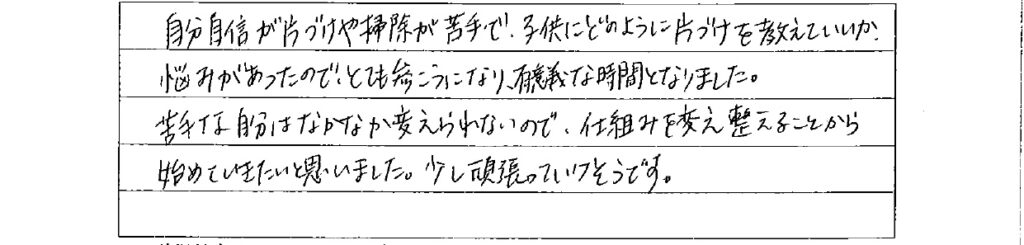 自分自信が片づけや掃除が苦手で、子供にどのように片づけを教えていいか、
悩みがあったので、とても参こうになり、有意義な時間となりました。
苦手な自分はなかなか変えられないので、仕組みを変え整えることから
始めていきたいと思いました。少し頑張っていけそうです。